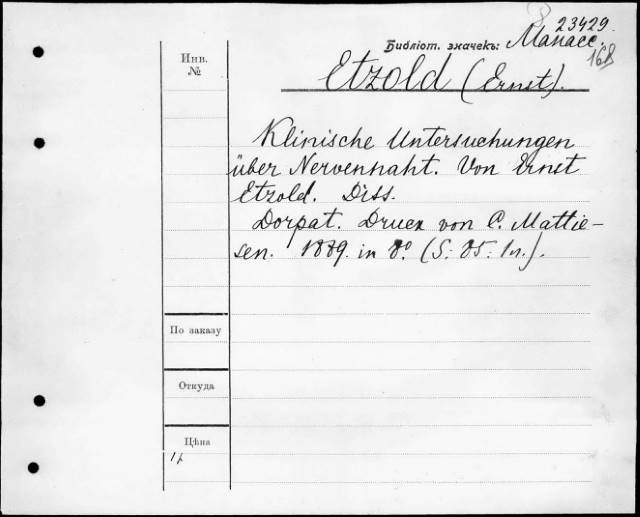 23429
Библіот. значекъ: Манасс.
168
Инв.
№
Etzold (Ernst).
Klinische Untersuchungen
über Nervennaht. Von Ernst
Etzold. Diss.
Dorpat. Druck von C. Mattie-
sen. 1889. in 8° (S. 85. 1n.).
По заказу
Откуда
Цѣна